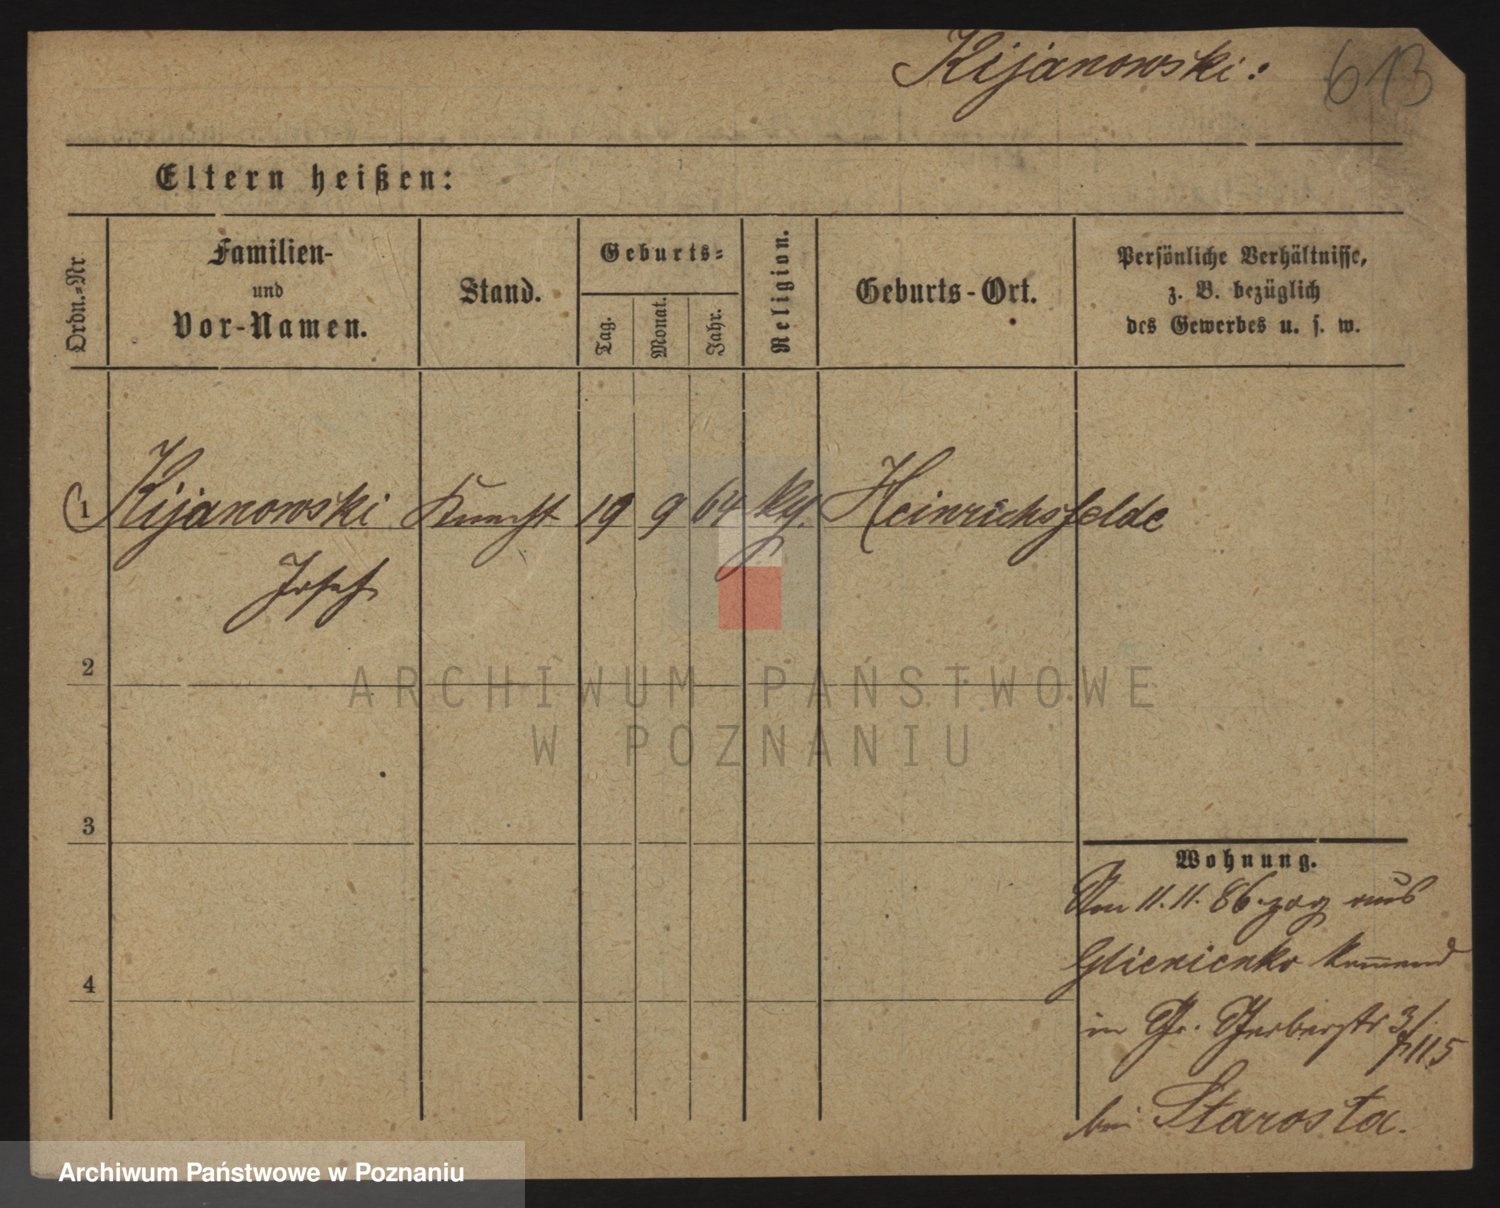 Kijanowski:
613
Eltern heißen:
Ordn.-Nr
Familien-
und
Vor-Namen.
Stand.
Geburts-
Tag.
Monat.
Jahr.
Religion.
Geburts-Ort.
Persönliche Verhältnisse,
z. B. bezüglich
des Gewerbes u. s. w.
1 Kijanowski Knecht 19 9 64 kg. Heinrichsfelde
Josef
2
3
4
ARCHIWUM PAŃSTWOWE
W POZNANIU
Wohnung.
Am 11.11.86 zog aus
Glinienko kommend
in Gr. Gerberstr 3/
115
bei Starosta.
Archiwum Państwowe w Poznaniu